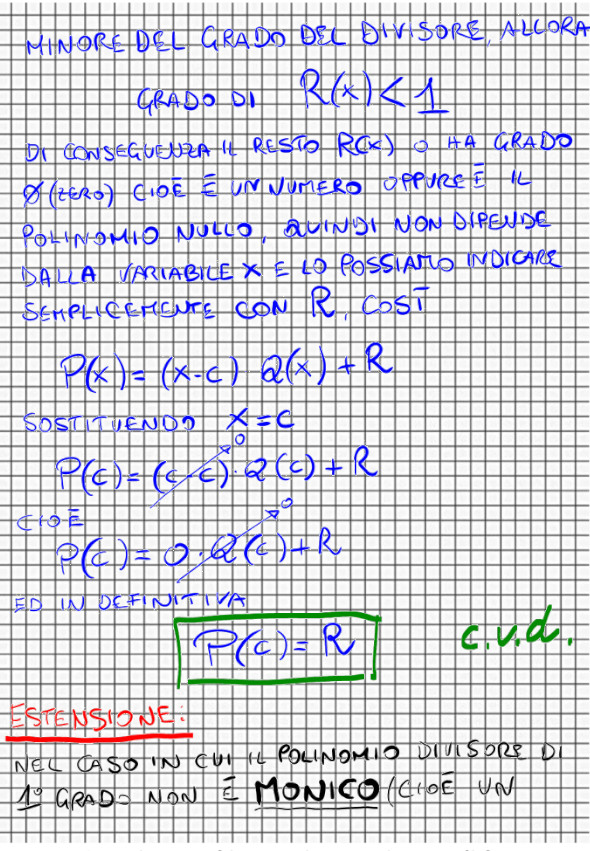 MINORE DEL GRADO DEL DIVISORE, ALLORA
GRADO DI R(x) < 1
DI CONSEGUENZA IL RESTO R(x) O HA GRADO
Ø (ZERO) CIOÈ È UN NUMERO OPPURE È IL
POLINOMIO NULLO, QUINDI NON DIPENDE
DALLA VARIABILE X E LO POSSIAMO INDICARE
SEMPLICEMENTE CON R, COSÌ
P(x) = (x-c) Q(x) + R
SOSTITUENDO X = C
P(c) = (c-c)⁰ · Q(c) + R
CIOÈ
P(c) = 0 · Q(c)⁰ + R
ED IN DEFINITIVA
P(c) = R c.v.d.
ESTENSIONE:
NEL CASO IN CUI IL POLINOMIO DIVISORE DI
1° GRADO NON È MONICO (CIOÈ UN